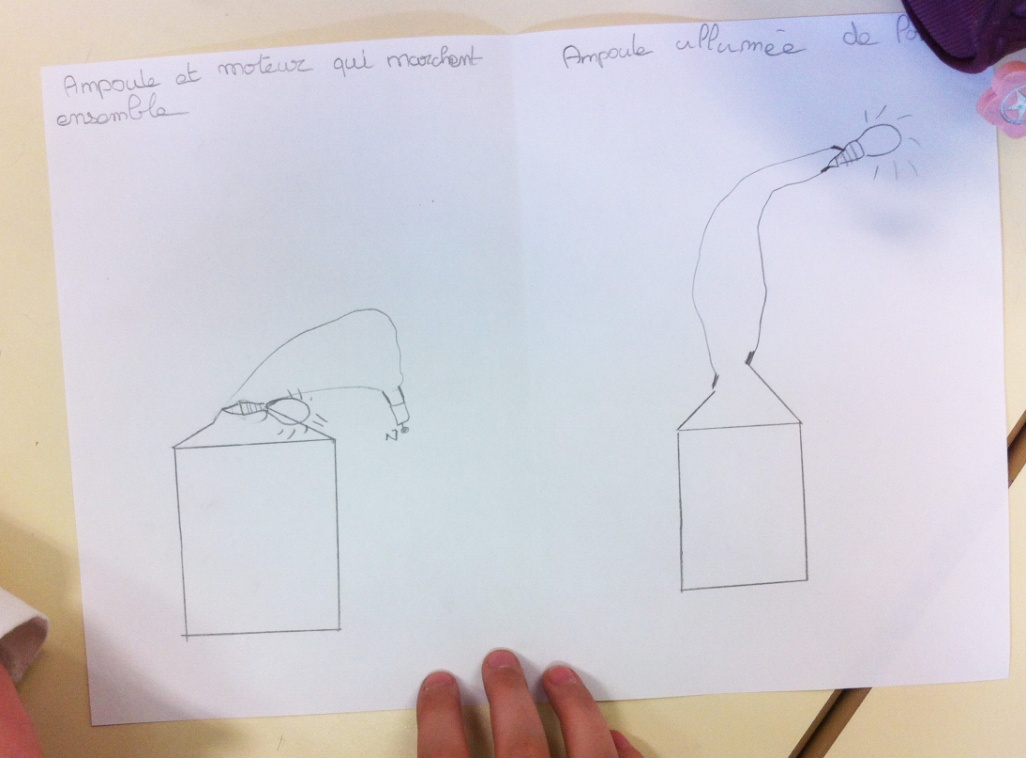 Ampoule et moteur qui marchent
ensemble
Ampoule allumée de